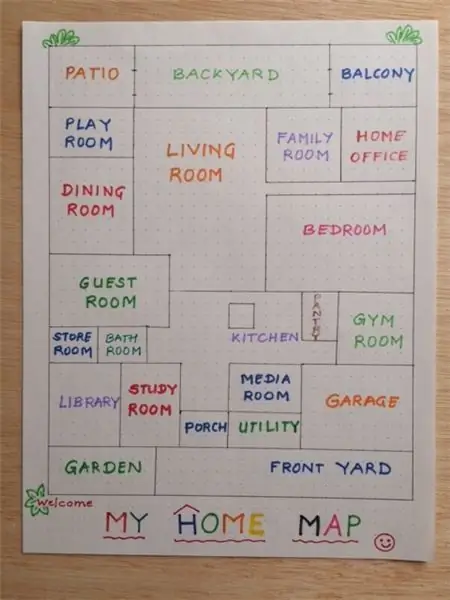 PATIO
BACKYARD
BALCONY
PLAY
ROOM
LIVING
ROOM
FAMILY
ROOM
HOME
OFFICE
DINING
ROOM
BEDROOM
GUEST
ROOM
PANTRY
GYM
ROOM
KITCHEN
STORE
ROOM
BATH
ROOM
LIBRARY
STUDY
ROOM
MEDIA
ROOM
GARAGE
PORCH
UTILITY
GARDEN
FRONT YARD
Welcome
MY HOME MAP